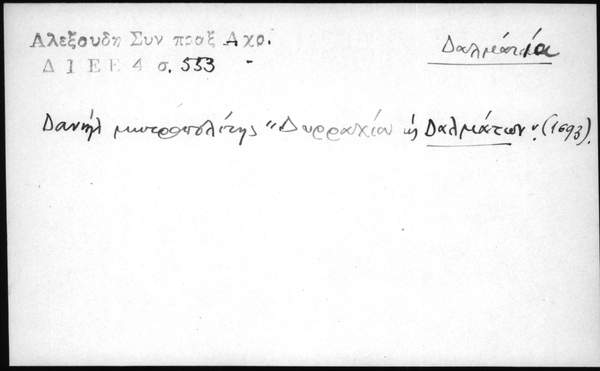 Αλεξουδη Συν πραξ Αχρ.
Δαλματία
Δ Ι Ε Ε 4 σ. 553 -
Δανιήλ μητροπολίτης "Δυρραχίου ἠ Δαλμάτων". (1693).